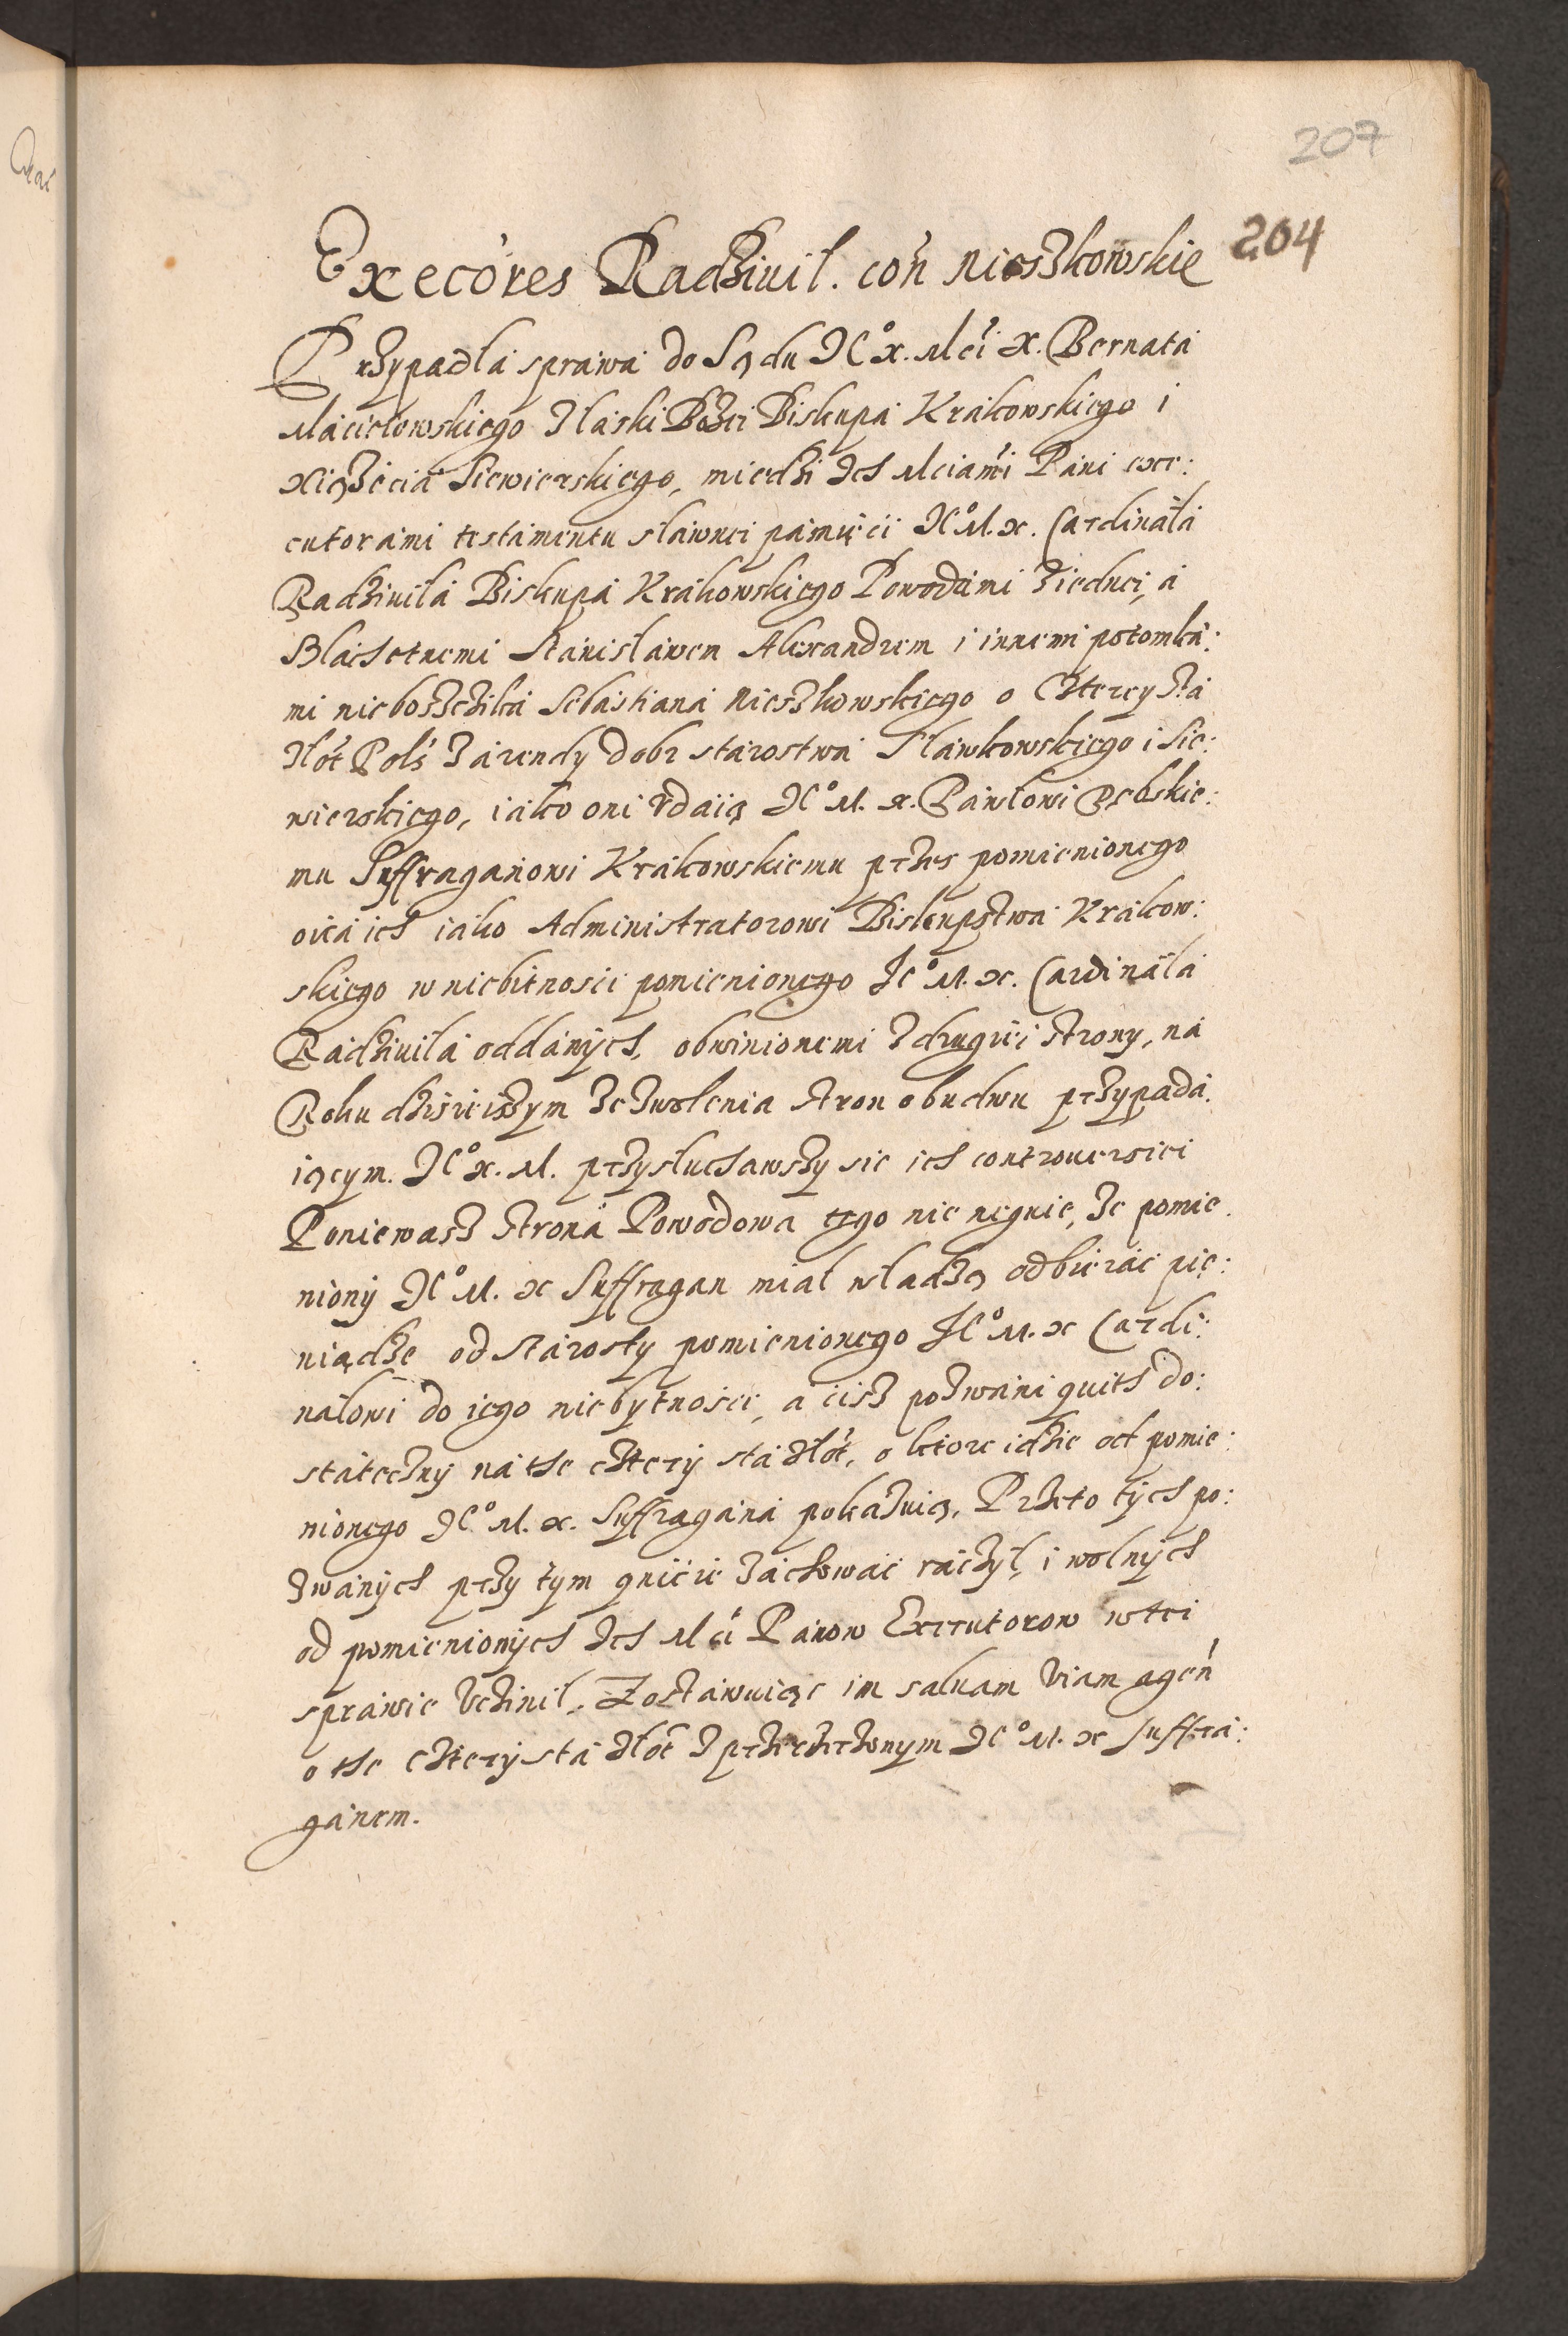 207
204
Execőres Radziuił. coń Nieszkowskie
Przypadłá spráwá do Sądu JE° X. Mći X. Bernatá
Máciełowskiego Z łáski Bożei Biskupá Krákowskiego i
Xiążéciá Siewierskiego, miedzi Ich Mciámi Páni exe:
cutorámi testámentu sławnei pámięci JE° M. X. Cardinałá
Radziuiłá Biskupá Krákowskiego Powodámi Ziednei, á
Szlachetnemi Stánisłáwem Alexandrem i innemi potomká:
mi nieboszczika Sebástianá Nieszkowskiego o Czterysta
Złót Polś Z árendy dobr stárostwá Słáwkowskiego i Sie:
wierskiego, iáko oni vdáią JE° M. X. Páwłowi Dębskie:
mu Suffraganowi Krákowskiemu przes pomienionego
oicá ich iáko Administratorowi Biskupstwá Krákow:
skiego w niebitnosci pomienionego JE° M. X. Cardinałá
Radziuiłá oddánych, obwinionemi Z drugiei strony, ná
Roku dzisieiszym Ze Zwolenia stron obudwu przypadá.
iącym. JE° X. M. przysłuchawszy sie ich controuersiei
Poniewasz stroná Powodowa tego nie neguie, Ze pomie.
niony JE° M. X Suffragan miał władzą odbieráć pie:
niądze od Stárosty pomienionego JE° M. X Cardi:
nałowi do iego niebytnosci, a ciśz pozwáni quith do:
státeczny ná the cztery stá złót, o ktore idzie od pomie:
nionego JE° M. X. Suffraganá pokázuią. Przeto tych po:
zwánych przy tym quicie záchowáć ráczył, i wolnych
od pomienionych Ich Mći Pánow Executorow w tei
spráwie vczinił, Zostáwuiąc im saluam viam ageń
o the czterystá złót z przerzeczonym JE° M. X Suffra:
gánem.